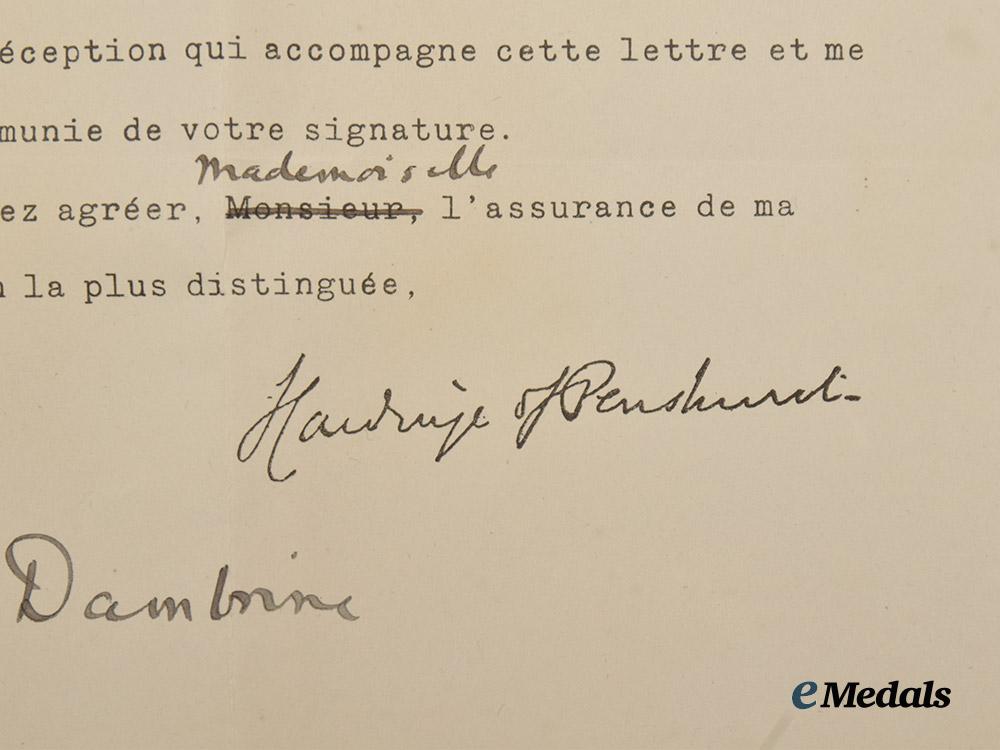 éception qui accompagne cette lettre et me
munie de votre signature.
Mademoiselle
ez agréer, Monsieur, l'assurance de ma
n la plus distinguée,
Hardinge of Penshurst.
Dambrine
eMedals